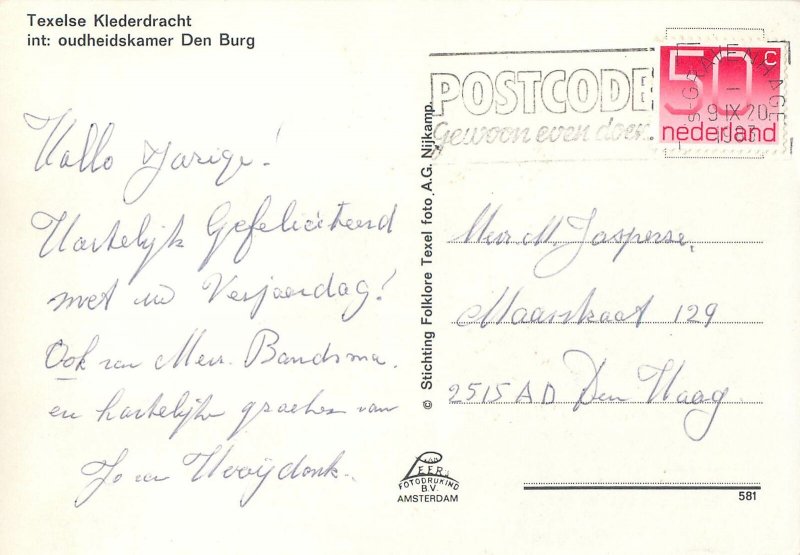 Texelse Klederdracht
int: oudheidskamer Den Burg
Hallo Jarige!
Hartelijk Gefeliciteerd
met uw Verjaardag!
Ook van Mevr. Bandsma.
en hartelijke groeten van
Jo van Hooijdonk.
© Stichting Folklore Texel foto A.G. Nijkamp.
POSTCODE
Gewoon even doen.
50c
nederland
'S-GRAVENHAGE
9 IX 20
1983
Mevr. M. Jasperse,
Maasstraat 129
2515 AD Den Haag
VAN
LEER'S
FOTODRUKIND
B.V.
AMSTERDAM
581